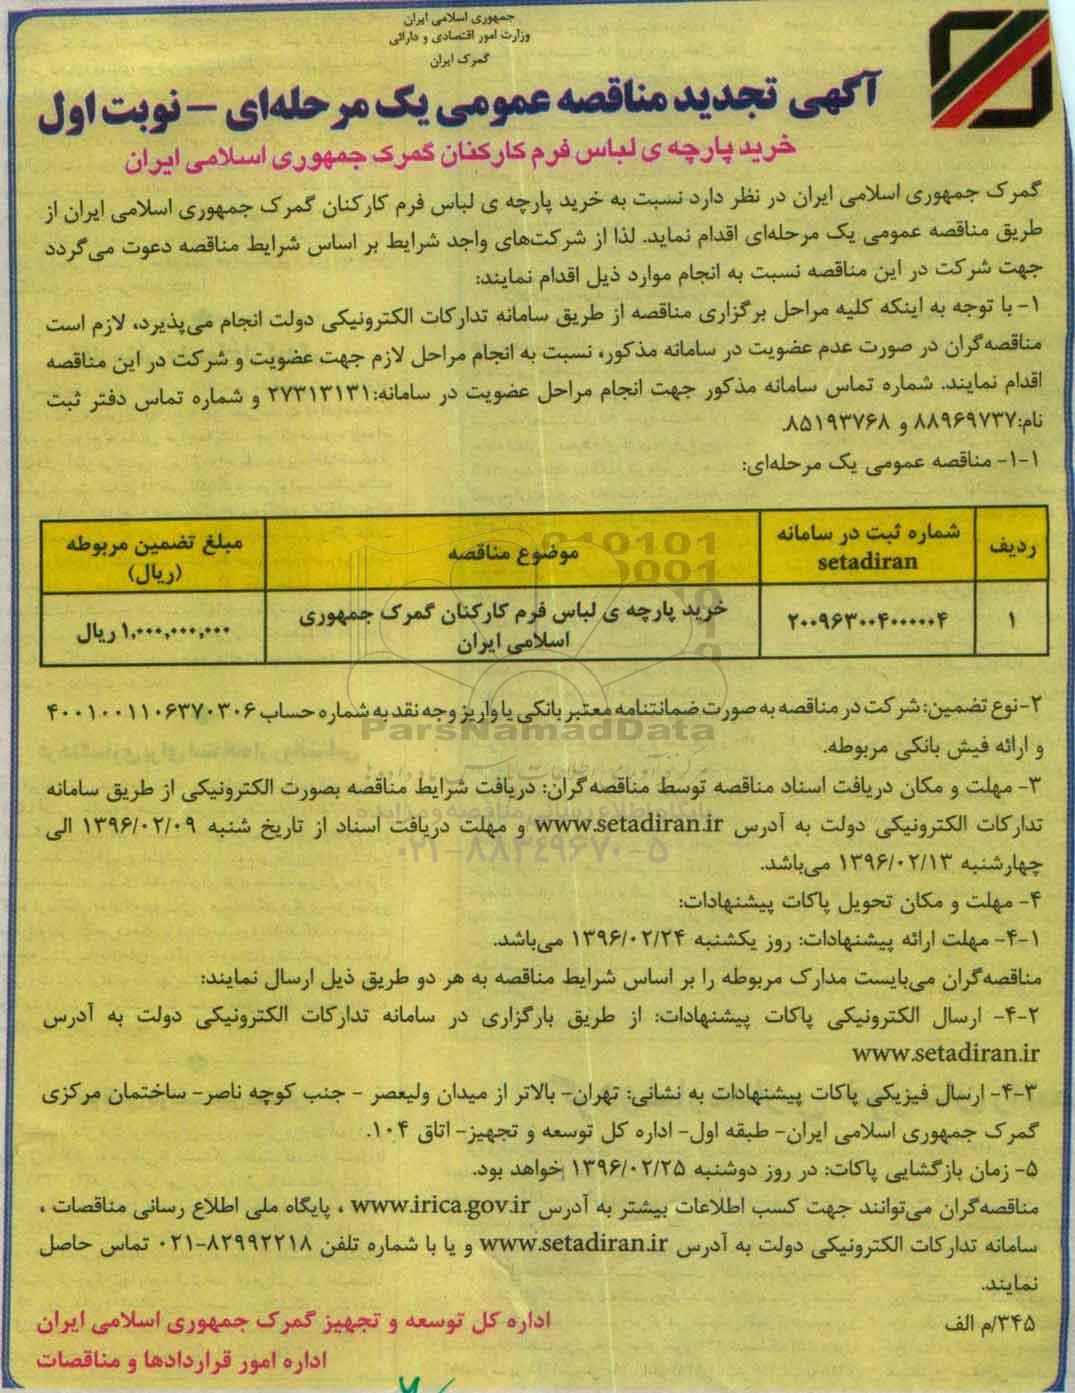 جمهوری اسلامی ایران
وزارت امور اقتصادی و دارائی
گمرک ایران
آگهی تجدید مناقصه عمومی یک مرحله‌ای – نوبت اول
خرید پارچه ی لباس فرم کارکنان گمرک جمهوری اسلامی ایران
گمرک جمهوری اسلامی ایران در نظر دارد نسبت به خرید پارچه ی لباس فرم کارکنان گمرک جمهوری اسلامی ایران از
طریق مناقصه عمومی یک مرحله‌ای اقدام نماید. لذا از شرکت‌های واجد شرایط بر اساس شرایط مناقصه دعوت می‌گردد
جهت شرکت در این مناقصه نسبت به انجام موارد ذیل اقدام نمایند:
۱- با توجه به اینکه کلیه مراحل برگزاری مناقصه از طریق سامانه تدارکات الکترونیکی دولت انجام می‌پذیرد، لازم است
مناقصه‌گران در صورت عدم عضویت در سامانه مذکور، نسبت به انجام مراحل لازم جهت عضویت و شرکت در این مناقصه
اقدام نمایند. شماره تماس سامانه مذکور جهت انجام مراحل عضویت در سامانه:۲۷۳۱۳۱۳۱ و شماره تماس دفتر ثبت
نام:۸۸۹۶۹۷۳۷ و ۸۵۱۹۳۷۶۸.
۱-۱- مناقصه عمومی یک مرحله‌ای:
ردیف
شماره ثبت در سامانه
setadiran
موضوع مناقصه
مبلغ تضمین مربوطه
(ریال)
۱
۲۰۰۹۶۳۰۰۴۰۰۰۰۰۴
خرید پارچه ی لباس فرم کارکنان گمرک جمهوری
اسلامی ایران
۱,۰۰۰,۰۰۰,۰۰۰ ریال
۲-نوع تضمین: شرکت در مناقصه به صورت ضمانتنامه معتبر بانکی یا واریز وجه نقد به شماره حساب ۴۰۰۱۰۰۱۱۰۶۳۷۰۳۰۶
و ارائه فیش بانکی مربوطه.
ParsNamadData
۳- مهلت و مکان دریافت اسناد مناقصه توسط مناقصه گران: دریافت شرایط مناقصه بصورت الکترونیکی از طریق سامانه
تدارکات الکترونیکی دولت به آدرس www.setadiran.ir و مهلت دریافت اسناد از تاریخ شنبه ۱۳۹۶/۰۲/۰۹ الی
۰۲۱-۸۸۳۴۹۶۷۰-۵
چهارشنبه ۱۳۹۶/۰۲/۱۳ می‌باشد.
۴- مهلت و مکان تحویل پاکات پیشنهادات:
۴-۱- مهلت ارائه پیشنهادات: روز یکشنبه ۱۳۹۶/۰۲/۲۴ می‌باشد.
مناقصه‌گران می‌بایست مدارک مربوطه را بر اساس شرایط مناقصه به هر دو طریق ذیل ارسال نمایند:
۴-۲- ارسال الکترونیکی پاکات پیشنهادات: از طریق بارگزاری در سامانه تدارکات الکترونیکی دولت به آدرس
www.setadiran.ir
۴-۳- ارسال فیزیکی پاکات پیشنهادات به نشانی: تهران- بالاتر از میدان ولیعصر - جنب کوچه ناصر- ساختمان مرکزی
گمرک جمهوری اسلامی ایران- طبقه اول- اداره کل توسعه و تجهیز- اتاق ۱۰۴.
۵- زمان بازگشایی پاکات: در روز دوشنبه ۱۳۹۶/۰۲/۲۵ خواهد بود.
مناقصه‌گران می‌توانند جهت کسب اطلاعات بیشتر به آدرس www.irica.gov.ir ، پایگاه ملی اطلاع رسانی مناقصات ،
سامانه تدارکات الکترونیکی دولت به آدرس www.setadiran.ir و یا با شماره تلفن ۸۲۹۹۲۲۱۸-۰۲۱ تماس حاصل
نمایند.
۳۴۵/م الف
اداره کل توسعه و تجهیز گمرک جمهوری اسلامی ایران
اداره امور قراردادها و مناقصات